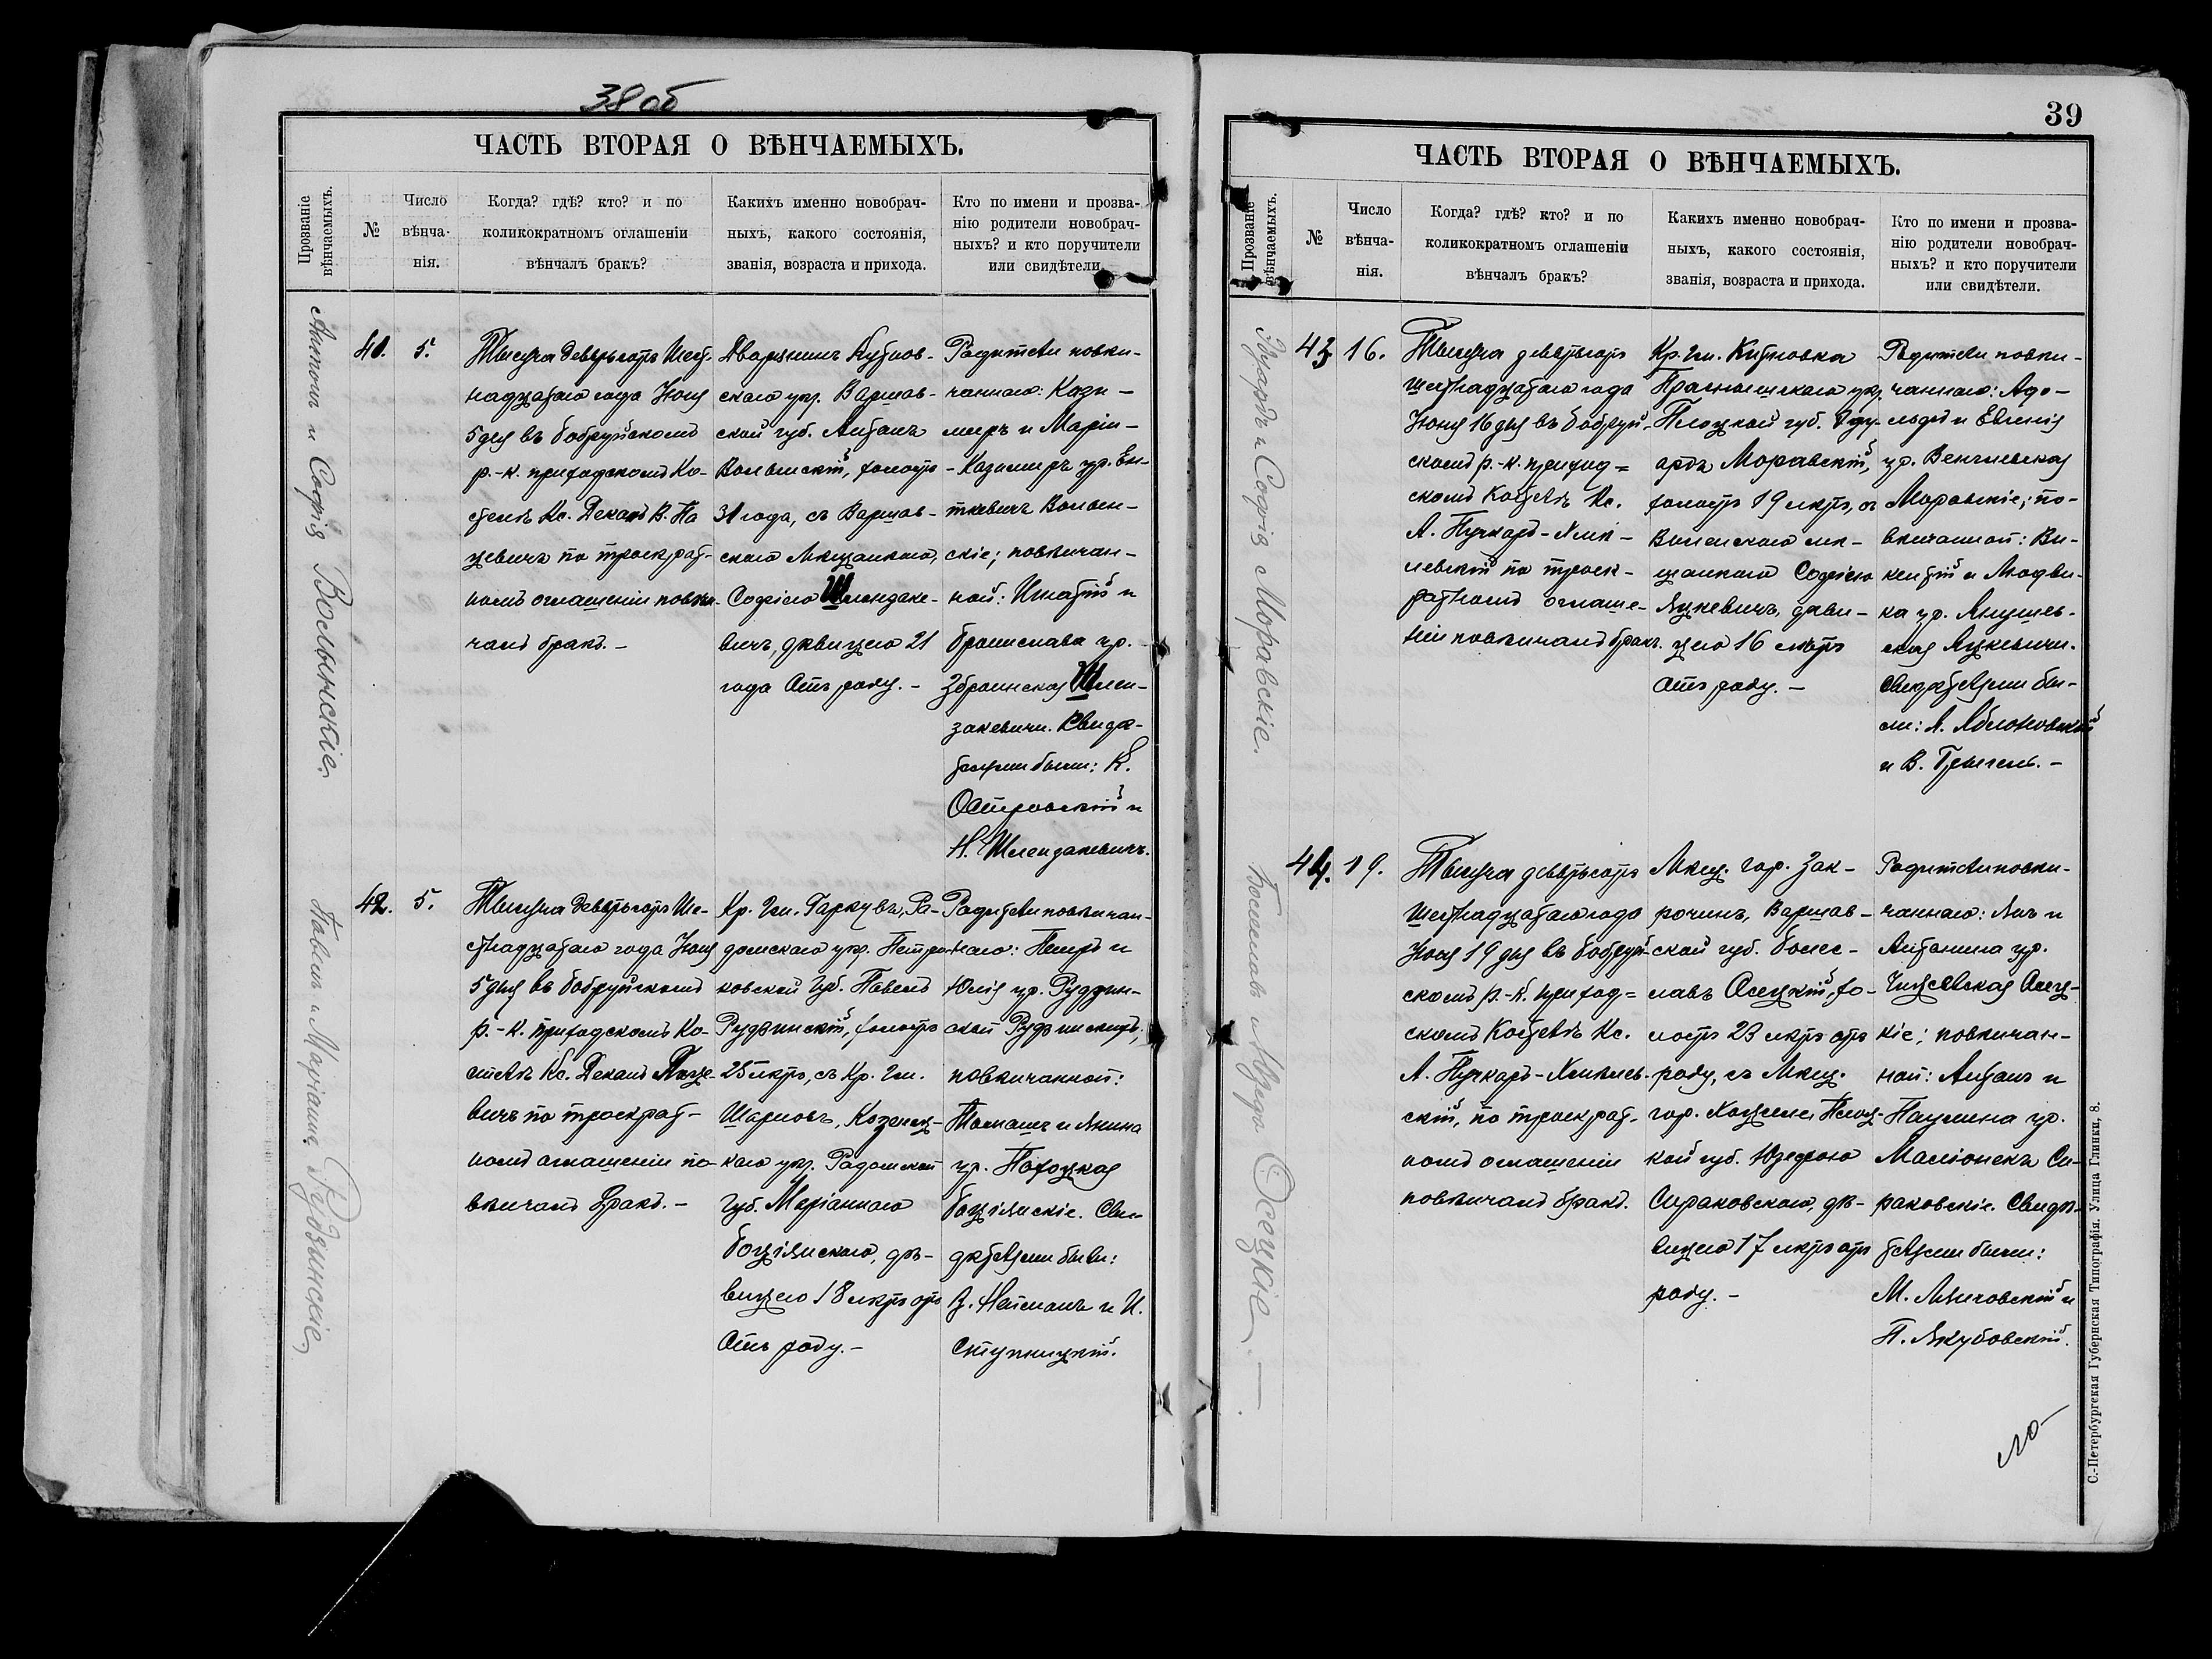 38 об
ЧАСТЬ ВТОРАЯ О ВѢНЧАЕМЫХЪ.
Прозваніе
вѣнчаемыхъ.
№
Число
вѣнча-
нія.
Когда? гдѣ? кто? и по
коликократномъ оглашеніи
вѣнчалъ бракъ?
Какихъ именно новобрач-
ныхъ, какого состоянія,
званія, возраста и прихода.
Кто по имени и прозва-
нію родители новобрач-
ныхъ? и кто поручители
или свидѣтели.
Антонъ и Софія Волынскіе.
41.
5.
Тысяча девятьсотъ Шест-
надцатаго года Іюня
5 дня въ Бобруйскомъ
р.-к. приходскомъ Ко-
стелѣ Кс. Деканъ В. Па
цевичъ по троекрат-
номъ оглашеніи повѣн-
чалъ бракъ. –
Дворянинъ Кутнов-
скаго уѣз. Варшав-
ской губ. Антонъ
Волынскій, холостъ
31 года, съ Варшав-
скою Мѣщанкою,
Софіею Шлендаке-
вичъ, дѣвицею 21
года отъ роду. –
Родители повѣн-
чаннаго: Кази-
миръ и Марія-
скіе; повѣнчан-
ной: Игнатій и
Бронислава ур.
Збраинская Шлен-
закевичи. Свидѣ-
телями были: К.
Островскій и
Н. Шлендакевичъ.
Павелъ и Маріанна Рудзинскіе
42.
5.
Тысяча девятьсотъ Ше-
стнадцатаго года Іюня
5 дня въ Бобруйскомъ
р.-к. приходскомъ Ко-
стелѣ Кс. Деканъ Паце-
вичъ по троекрат-
номъ оглашеніи по-
вѣнчалъ бракъ. –
Кр. Гм. Гаркувъ, Ра-
домскаго уѣз. Петро-
ковской Губ. Павелъ
Рудзинскій, холостъ
25 лѣтъ, съ Кр. Гм.
Шарновъ, Козениц-
каго уѣз. Радомской
Губ. Маріанною
Боціянскою, дѣ-
вицею 18 лѣтъ отъ
отъ роду. –
Родители повѣнчан-
наго: Петръ и
Юлія ур. Рудзин-
ской Рудзинскихъ,
повѣнчанной:
Томашъ и Янина
ур. Потоцкая
Боціянскіе. Сви-
дѣтелями были:
З. Нейманъ и И.
Ступницкій.
39
ЧАСТЬ ВТОРАЯ О ВѢНЧАЕМЫХЪ.
Прозваніе
вѣнчаемыхъ.
№
Число
вѣнча-
нія.
Когда? гдѣ? кто? и по
коликократномъ оглашеніи
вѣнчалъ бракъ?
Какихъ именно новобрач-
ныхъ, какого состоянія,
званія, возраста и прихода.
Кто по имени и прозва-
нію родители новобрач-
ныхъ? и кто поручители
или свидѣтели.
Эдуардъ и Софія Моравскіе.
43
16.
Тысяча девятьсотъ
Шестнадцатаго года
Іюня 16 дня въ Бобруй-
скомъ р.-к. приход=
скомъ Костелѣ Кс.
А. Пучкаръ-Хмѣ-
левскій по троек-
ратномъ оглаше-
ніи повѣнчалъ бракъ.
Кр. Гм. Китновка
Праснышскаго уѣз.
Плоцкой губ. Эду-
ардъ Моравскій,
холостъ 19 лѣтъ, съ
Виленскою мѣ-
щанкою Софіею
Яцкевичъ, дѣви-
цею 16 лѣтъ
отъ роду. –
Родители повѣн-
чаннаго: Адо-
льфъ и Евгенія
ур. Венглевская
Моравскіе; по-
вѣнчанной: Ви-
кентій и Людви-
ка ур. Янушев-
ская Яцкевичи.
Свидѣтелями бы-
ли: А. Яблоновскій
и В. Гринель. –
Болеславъ и Юзефа Осецкіе. –
44.
19.
Тысяча девятьсотъ
Шестнадцатаго года
Іюня 19 дня въ Бобруй-
скомъ р.-к. приход=
скомъ Костелѣ Кс.
А. Пучкаръ-Хмѣлев-
скій, по троекрат-
номъ оглашеніи
повѣнчалъ бракъ.
Мѣщ. гор. Зак-
рочинъ, Варшав-
ской губ. Болес-
лавъ Осецкій, хо-
лостъ 23 лѣтъ отъ
роду, съ Мѣщ.
гор. Плоц-
кой губ. Юзефою
Сираковскою, дѣ-
вицею 17 лѣтъ отъ
роду. –
Родители повѣн-
чаннаго: Янъ и
Антонина ур.
Осец-
кіе; повѣнчан-
ной: Антонъ и
Паулина ур.
Маліонекъ Си-
раковскіе. Свидѣ-
телями были:
М. Лянговскій и
П. Якубовскій.
С.-Петербургская Губернская Типографія. Улица Глинки, 8.